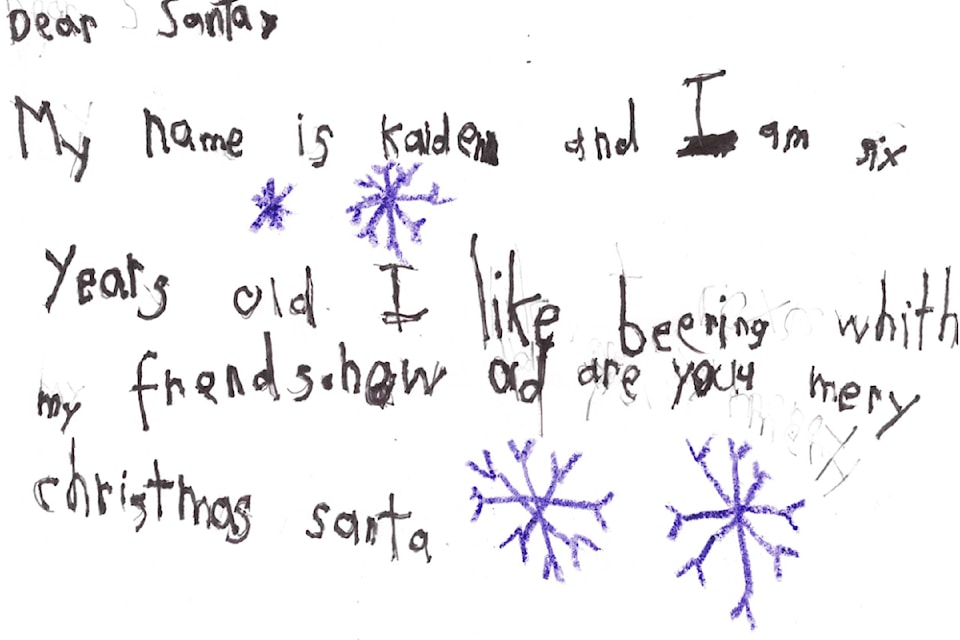 Dear Santa,
My name is Kaiden and I am six
years old. I like beering whith
my frends. how old are you? mery
christmas santa